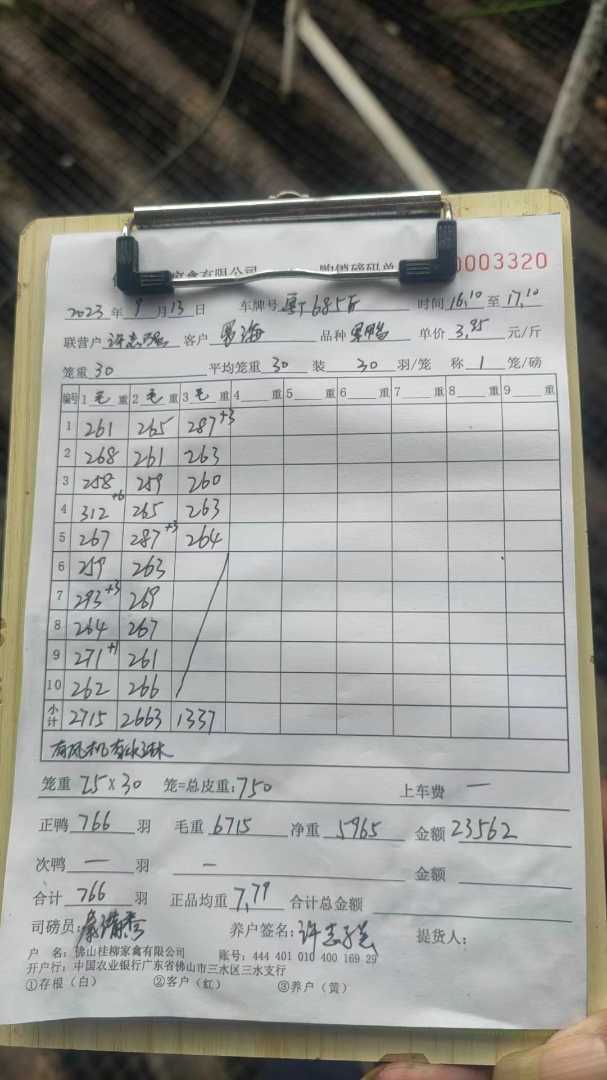 家禽有限公司 购销磅码单 0003320
2023年9月13日 车牌号 粤J685 时间16:10至17:10
联营户 许志 客户 海 品种 单价3.95元/斤
笼重30 平均笼重30装30羽/笼 称1笼/磅
编号 1毛重 2毛重 3毛重 4重 5重 6重 7重 8重 9重
1 261 265 287+3
2 268 261 263
3 258 259 260
4 312+6 265 263
5 267 287+3 264
6 259 263
7 293+3 269
8 264 267
9 271+1 261
10 262 266
小计 2715 2663 1337
有风机有水淋
笼重25×30笼=总皮重:750 上车费 一
正鸭766羽 毛重6715 净重5965 金额23562
次鸭一羽 一 金额
合计766羽 正品均重7.79 合计总金额
司磅员: 养户签名:许志 提货人:
户 名:佛山桂柳家禽有限公司 账号:444 401 010 400 169 29
开户行:中国农业银行广东省佛山市三水区三水支行
①存根(白) ②客户(红) ③养户(黄)